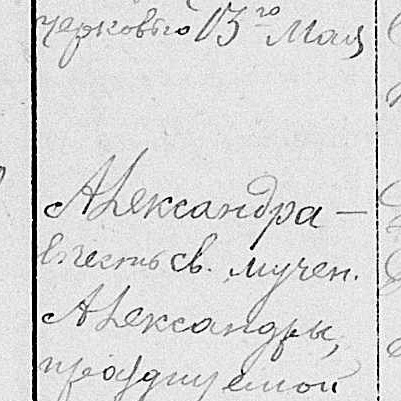 церковью 13го Мая
Александра —
въ честь св. мучен.
Александры,
празднуемой